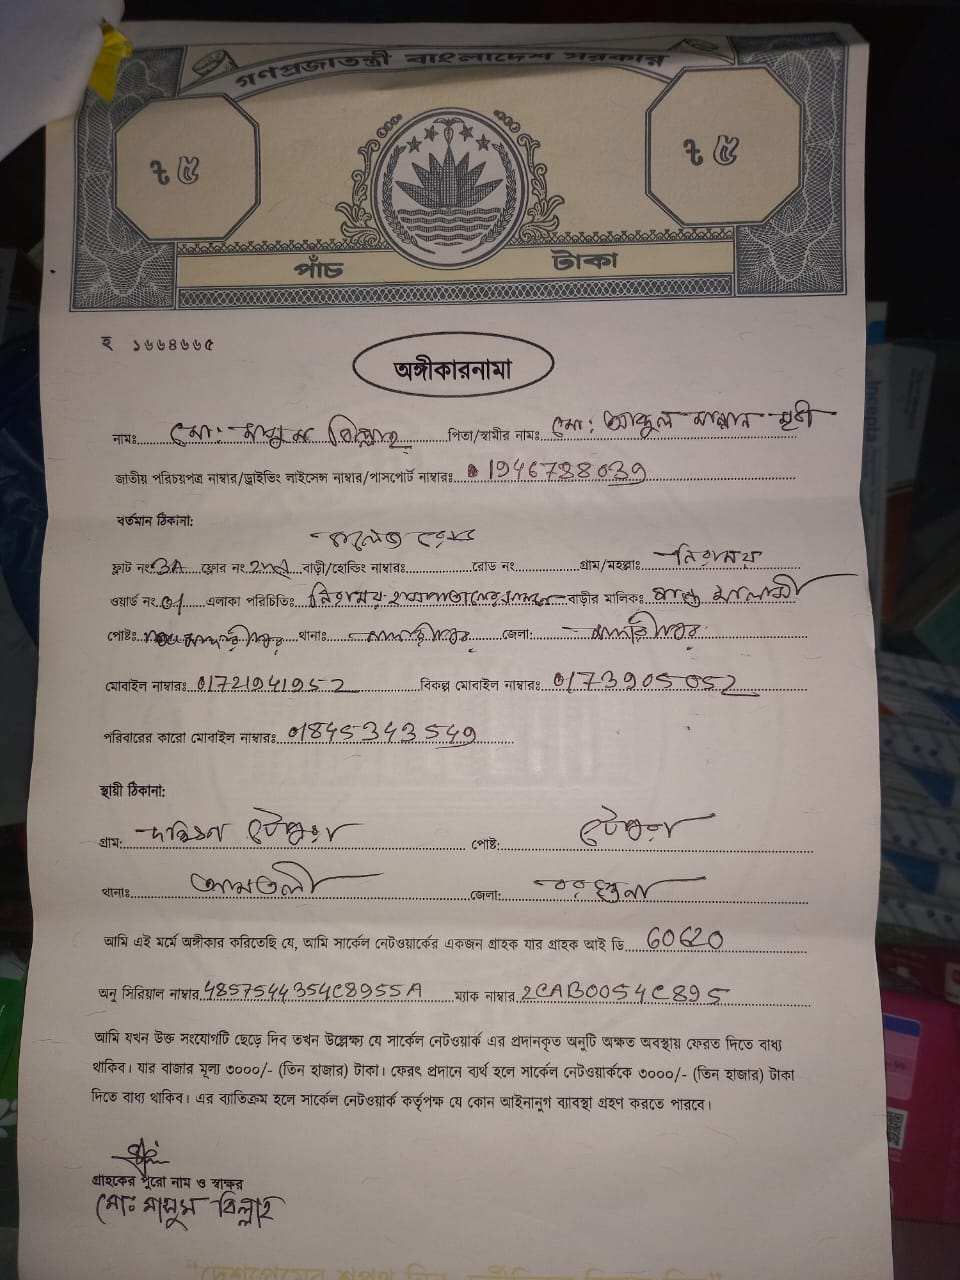 গণপ্রজাতন্ত্রী বাংলাদেশ সরকার
৳ ৫ ৳ ৫
পাঁচ টাকা
হ ১৬৬৪৬৬৫
অঙ্গীকারনামা
নাম: মো: মাসুম বিল্লাহ পিতা/স্বামীর নাম: মো: আব্দুল মান্নান মৃধা
জাতীয় পরিচয়পত্র নাম্বার/ড্রাইভিং লাইসেন্স নাম্বার/পাসপোর্ট নাম্বারঃ 1946728039
বর্তমান ঠিকানা:
কলেজ রোড
ফ্লাট নং: 3A ফ্লোর নং: 2nd বাড়ী/হোল্ডিং নাম্বারঃ রোড নং গ্রাম/মহল্লাঃ নিরাময়
ওয়ার্ড নং: 07 এলাকা পরিচিতিঃ নিরাময় হাসপাতালের বাড়ীর মালিকঃ
পোষ্টঃ মাদারীপুর থানাঃ মাদারীপুর জেলা: মাদারীপুর
মোবাইল নাম্বারঃ 01721941952 বিকল্প মোবাইল নাম্বারঃ 0173905052
পরিবারের কারো মোবাইল নাম্বারঃ 01845343549
স্থায়ী ঠিকানা:
গ্রাম: দক্ষিণ টেপুরা পোষ্ট: টেপুরা
থানাঃ আমতলী জেলা: বরগুনা
আমি এই মর্মে অঙ্গীকার করিতেছি যে, আমি সার্কেল নেটওয়ার্কের একজন গ্রাহক যার গ্রাহক আই ডি 60620
অনু সিরিয়াল নাম্বার 4857544354C8955A ম্যাক নাম্বার 2CAB0054C895
আমি যখন উক্ত সংযোগটি ছেড়ে দিব তখন উল্লেক্ষ্য যে সার্কেল নেটওয়ার্ক এর প্রদানকৃত অনুটি অক্ষত অবস্থায় ফেরত দিতে বাধ্য
থাকিব। যার বাজার মূল্য ৩০০০/- (তিন হাজার) টাকা। ফেরৎ প্রদানে ব্যর্থ হলে সার্কেল নেটওয়ার্ককে ৩০০০/- (তিন হাজার) টাকা
দিতে বাধ্য থাকিব। এর ব্যাতিক্রম হলে সার্কেল নেটওয়ার্ক কর্তৃপক্ষ যে কোন আইনানুগ ব্যাবস্থা গ্রহণ করতে পারবে।
গ্রাহকের পুরো নাম ও স্বাক্ষর
মোঃ মাসুম বিল্লাহ